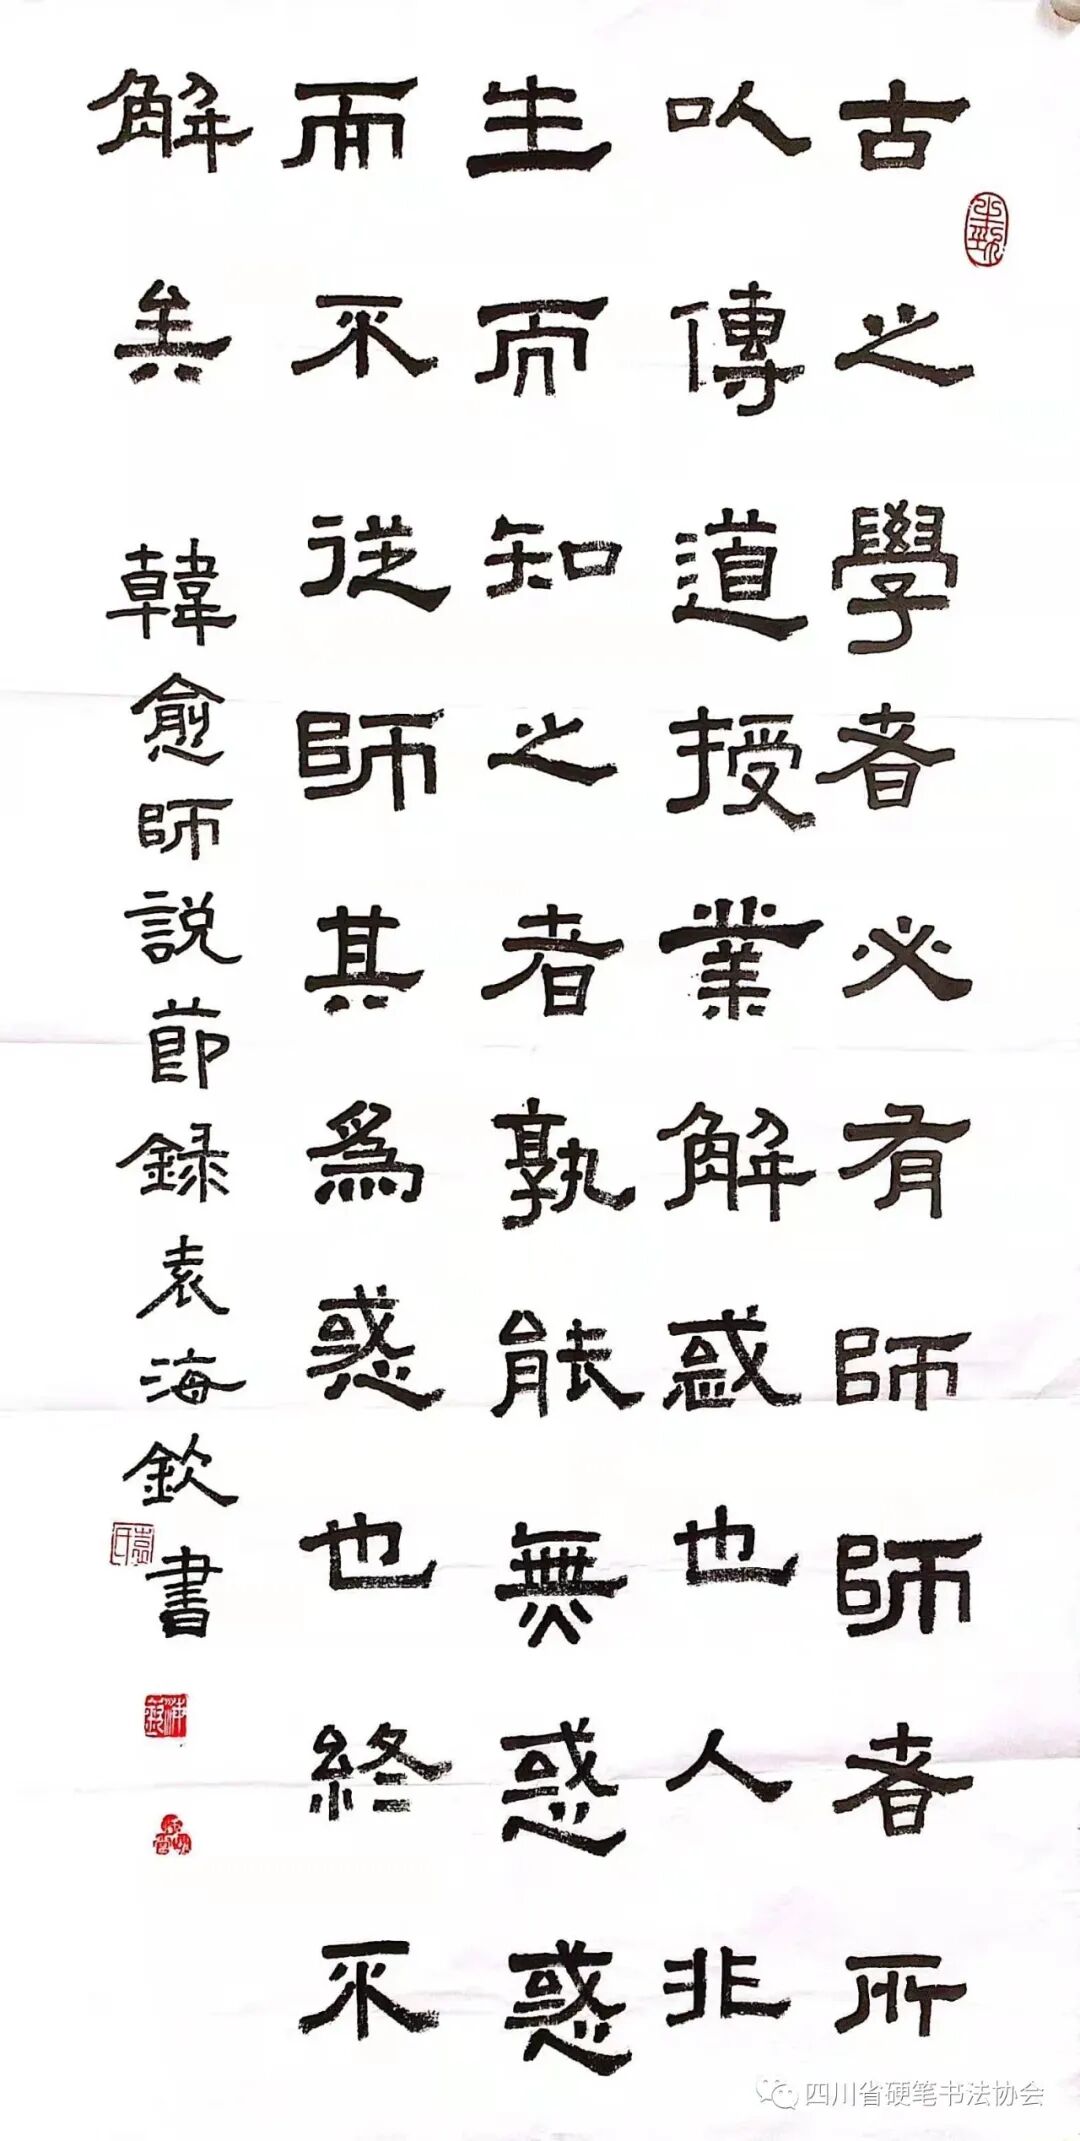 古之學者必有師師者所
以傳道授業解惑也人非
生而知之者孰能無惑惑
而不從師其爲惑也終不
解矣 韓愈師説節録袁海欽書
袁氏
海欽
四川省硬笔书法协会